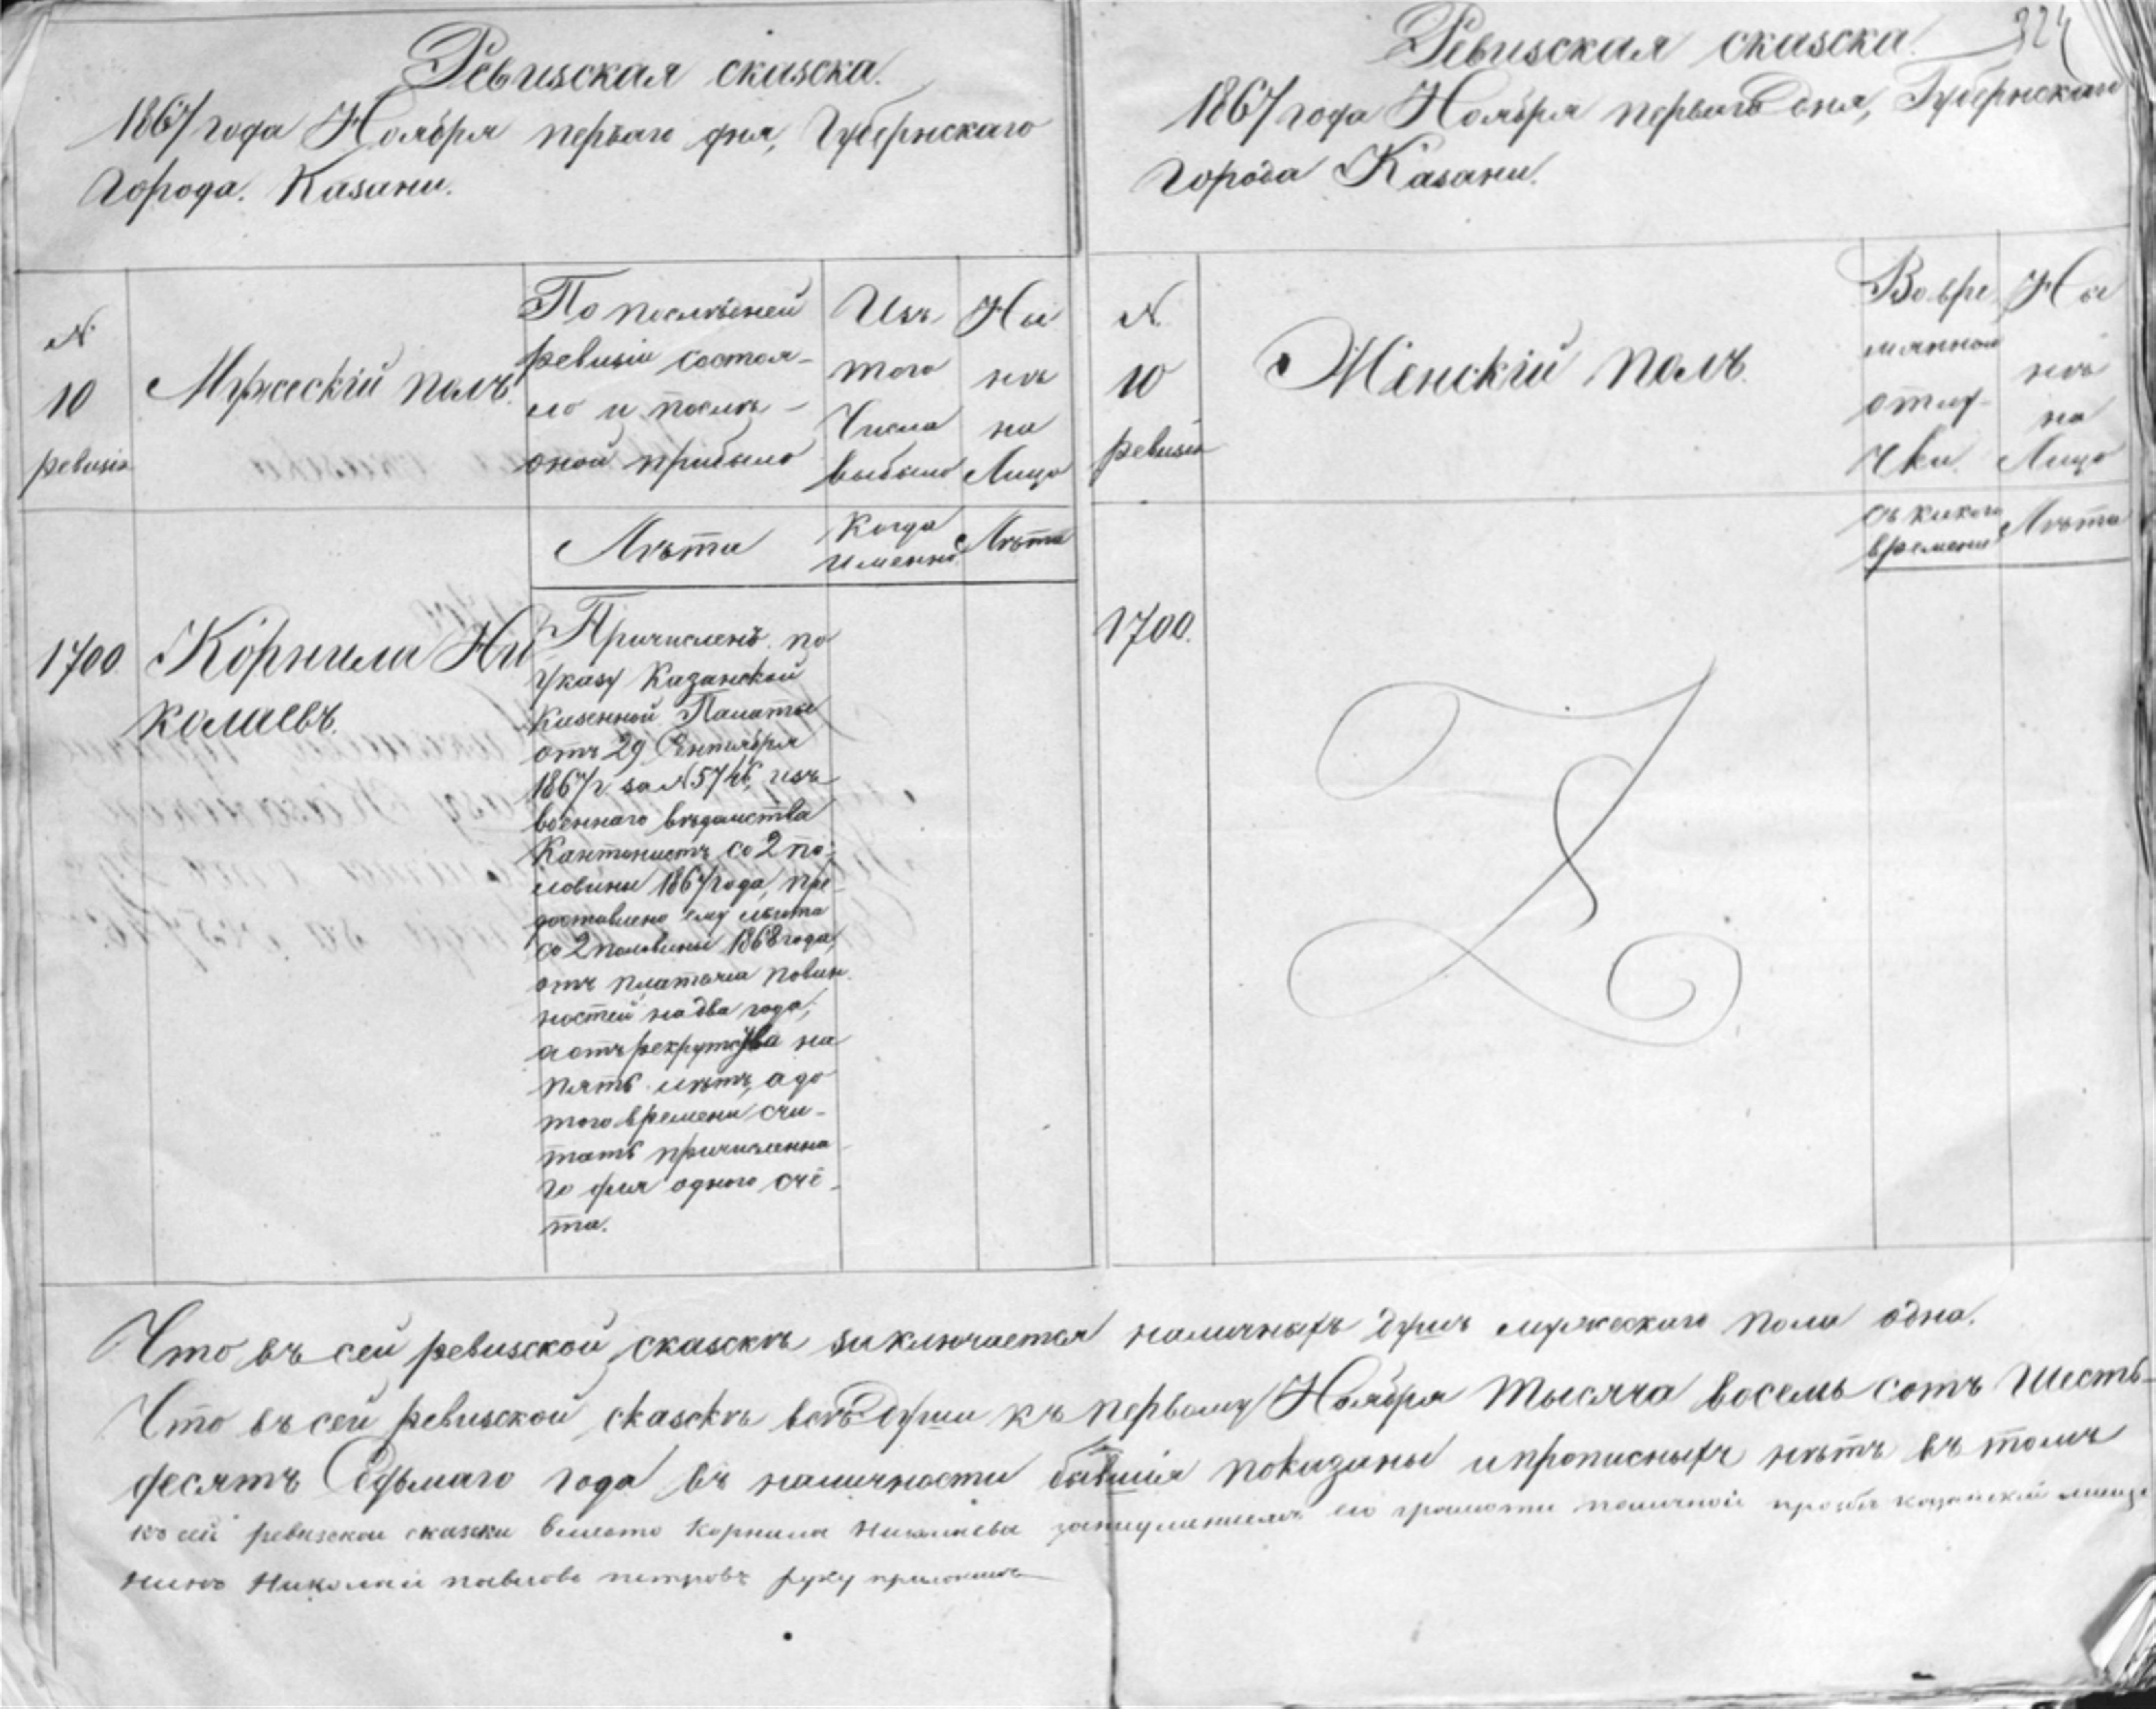 Ревизская сказка.
1867 года Ноября перваго дня, Губернскаго
Города. Казани.
N
10
ревизіи
Мужескій полъ.
По послѣдней
ревизіи состоя-
ло и послѣ-
оной прибыло
Изъ
того
Числа
выбыло
На
нѣ
на
Лицо
Лѣта
Когда
именно
Лѣта
1700.
Корнила Ни
колаевъ.
Причисленъ по
Указу Казанской
Казенной Палаты
отъ 29 Сентября
1867 г. за N 5746, изъ
военнаго вѣдомства
Кантонистъ со 2 по-
ловины 1867 года, пре-
доставлено ему льгота
со 2 половины 1868 года,
отъ платежа повин
ностей на два года,
а отъ рекрутства на
пять лѣтъ, а до
того времени счи-
тать причисленна
го для одного счё-
та.
224
Ревизская сказка.
1867 года Ноября перваго дня, Губернскаго
Города Казани.
N.
10
ревизіи
Женскій полъ.
Во вре
мянной
отлу-
чки.
Ны
нѣ
на
Лицо
Съ какого
времени
Лѣта
1700.
Что въ сей ревизской сказкѣ заключается наличныхъ душъ мужескаго пола одна.
Что въ сей ревизской сказкѣ всѣ души къ первому Ноября Тысяча восемь сотъ Шесть-
десятъ Седьмаго года въ наличности бывшія показаны и прописныхъ нѣтъ въ томъ
къ сей ревизской сказки вместо Корнила Николаева его грамоти по личной прозбѣ казанской мища
нинъ Николай павловъ петровъ руку приложилъ